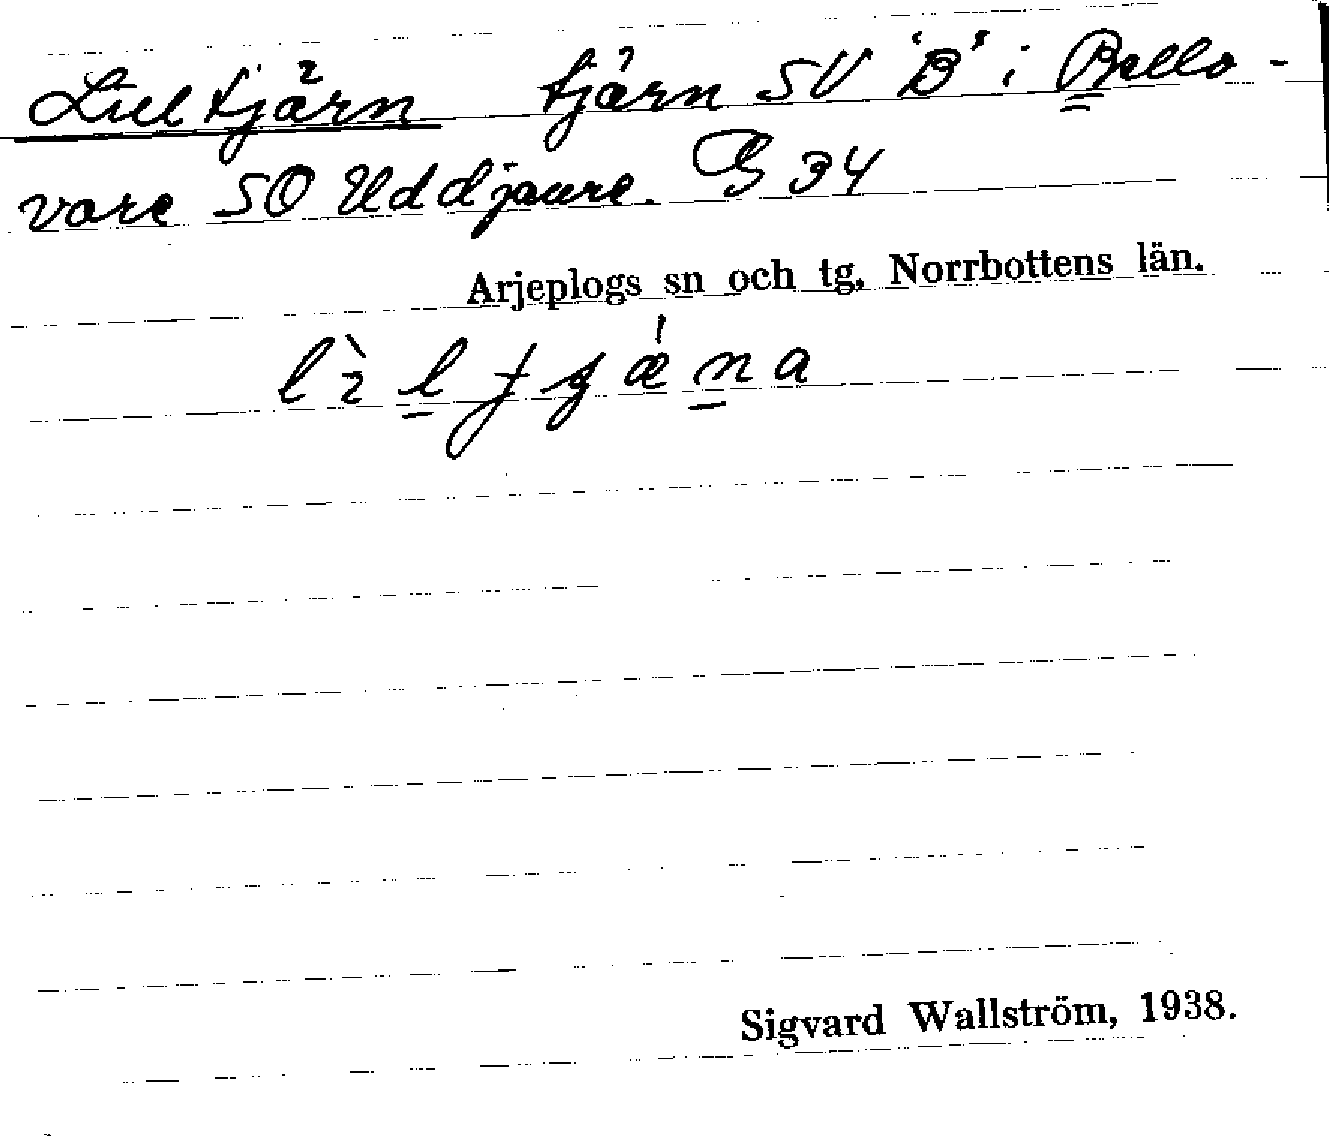 Liltjärn tjärn SV 'B' i Bello-
vare SO Uddjaure. G 34
Arjeplogs sn och tg. Norrbottens län.
Sigvard Wallström, 1938.